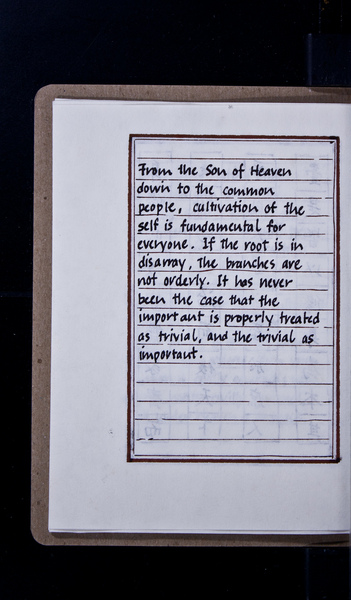 From the Son of Heaven
down to the common
people, cultivation of the
self is fundamental for
everyone. If the root is in
disarray, the branches are
not orderly. It has never
been the case that the
important is properly treated
as trivial, and the trivial as
important.